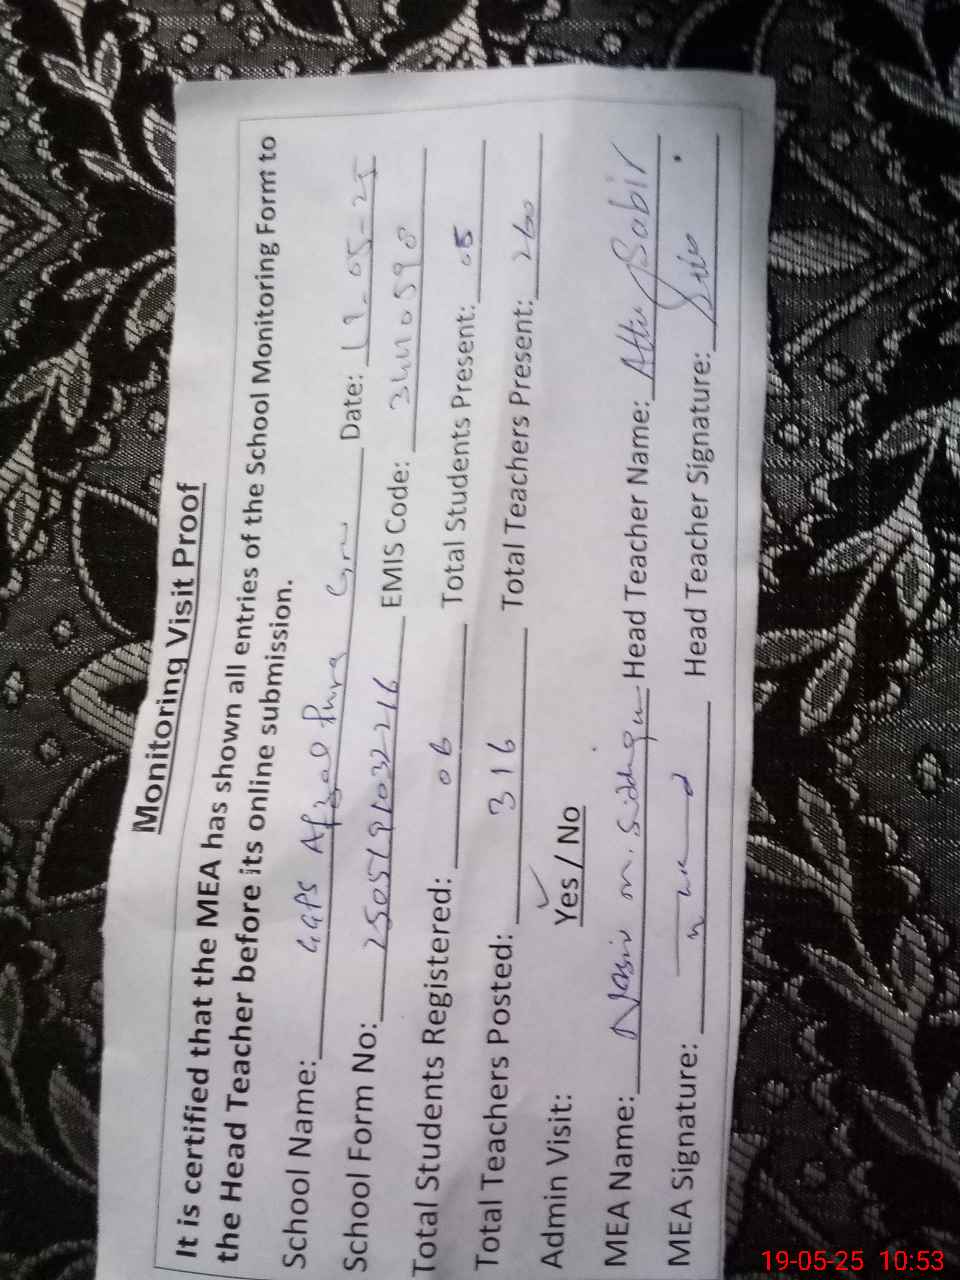 Monitoring Visit Proof
It is certified that the MEA has shown all entries of the School Monitoring Form to
the Head Teacher before its online submission.
School Name: GGPS Afzal Pura Date: 19-05-25
School Form No: 2505191032216 EMIS Code: 34110598
Total Students Registered: 06 Total Students Present: 05
Total Teachers Posted: 316 Total Teachers Present: 260
Admin Visit: Yes / No
MEA Name: M. Head Teacher Name: Sabir
MEA Signature: Head Teacher Signature:
19-05-25 10:53